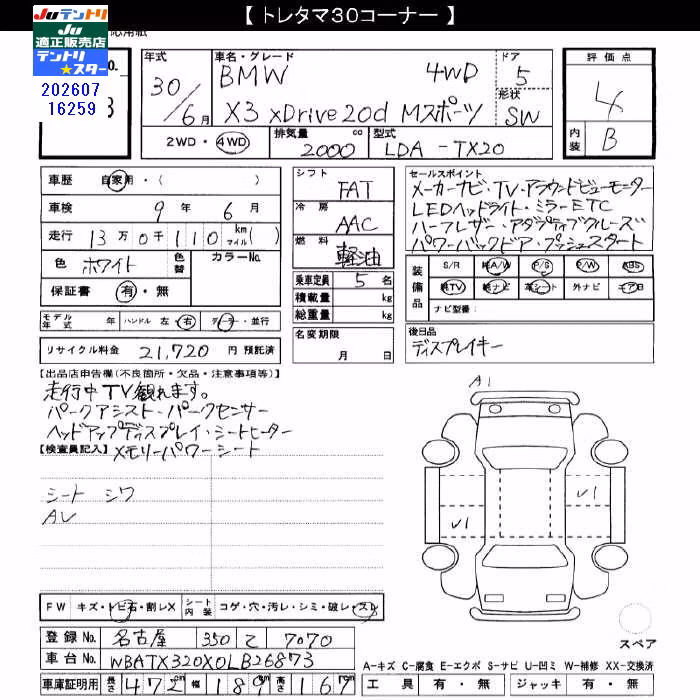 【 トレタマ30コーナー 】
Juテントリ
Ju
適正販売店
テントリ
★スター
応用紙
No.
202607
16259
3
年式
30/6月
車名・グレード
BMW 4WD
X3 xDrive20d Mスポーツ
ドア
5
形状
SW
評価点
4
内装 B
2WD・4WD
排気量 2000 cc
型式 LDA-TX20
車歴 自家用・( )
車検 9年 6月
走行 13万0千110 km(マイル)
色 ホワイト 色替 カラーNo.
保証書 有・無
シフト
FAT
冷房
AAC
燃料
軽油
乗車定員 5 名
積載量 kg
総重量 kg
名変期限
月 日
セールスポイント
メーカーナビ・TV・アラウンドビューモニター
LEDヘッドライト・ミラーETC
ハーフレザー・アダプティブクルーズ
パワーバックドア・プッシュスタート
装備品 S/R 純A/W P/S P/W ABS
純TV 純ナビ 革シート 外ナビ エアB
ナビ型番:
モデル年式 年 ハンドル 左・右 ディーラー・並行
リサイクル料金 21,720 円 預託済
後日品
ディスプレイキー
【出品店申告欄(不良箇所・欠品・注意事項等)】
走行中TV観れます。
パークアシスト・パークセンサー
ヘッドアップディスプレイ・シートヒーター
【検査員記入】メモリーパワーシート
シート シワ
AV
A1
V1
V1
FW キズ・トビ石・割レX シート内装 コゲ・穴・汚レ・シミ・破レ・スレ
登録No. 名古屋 350 て 7070
車台No. WBATX320X0LB26873
車庫証明用 長さ 472 cm 幅 189 cm 高さ 167 cm
スペア
A-キズ C-腐食 E-エクボ S-サビ U-凹ミ W-補修 XX-交換済
工具 有・無 ジャッキ 有・無